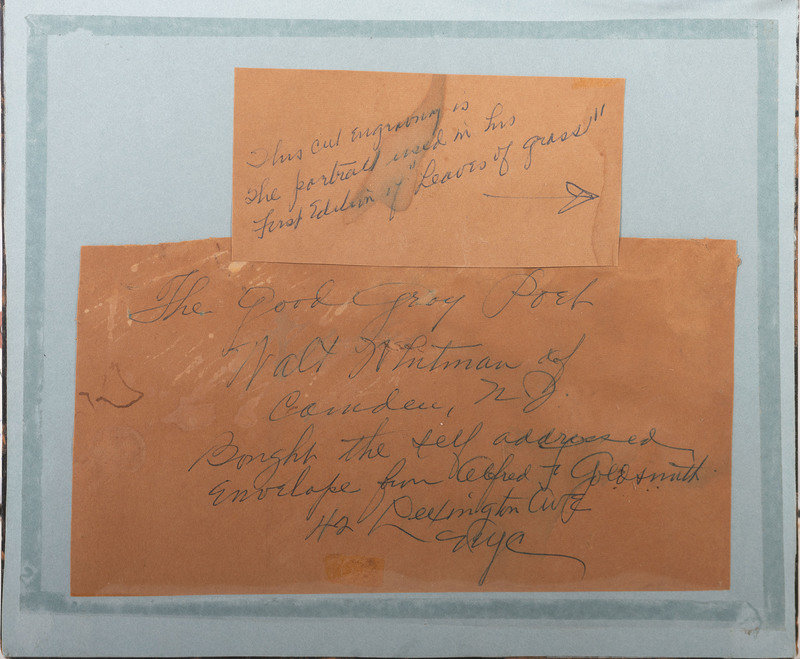 This cut engraving is
the portrait used in his
First Edition of "Leaves of Grass"
The Good Gray Poet
Walt Whitman of
Camden, NJ
Bought the self addressed
Envelope from Alfred F Goldsmith
42 Lexington Ave
NYC